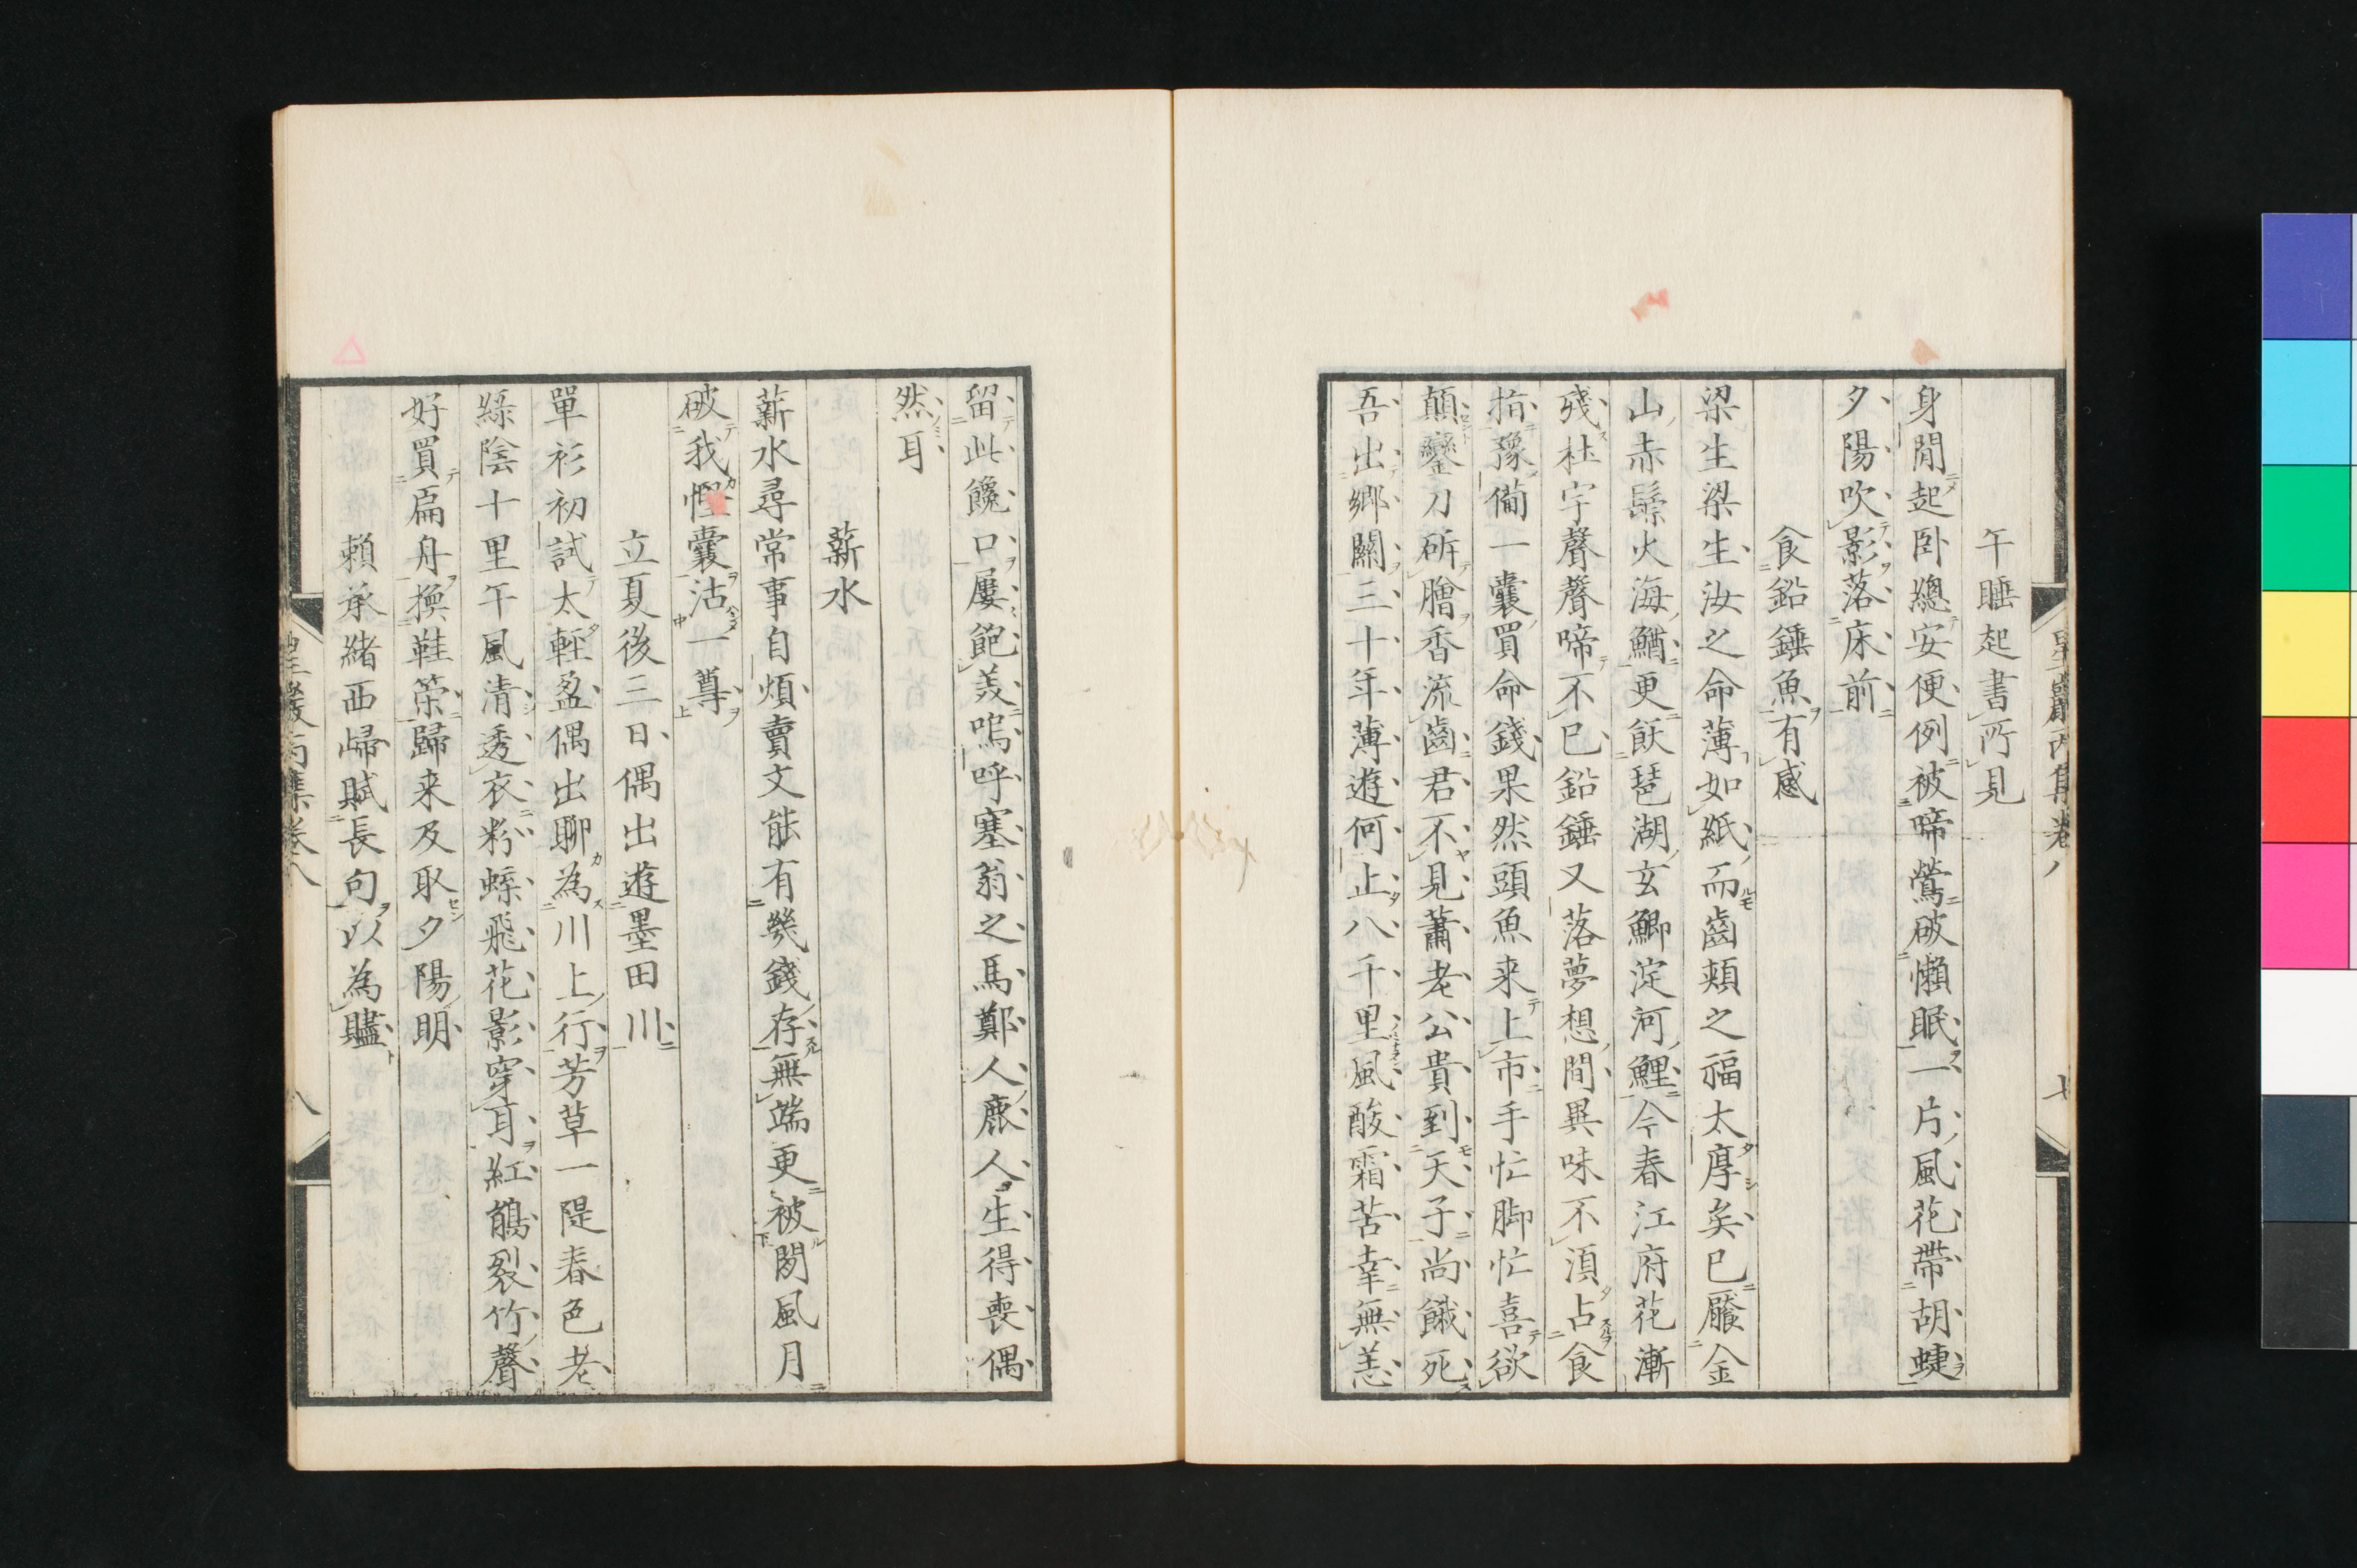 午睡起書所見
身閒起卧總安便例被啼鶯破懶眠一片風花帶胡蜨
夕陽吹影落床前
食鉛錘魚有感
梁生梁生汝之命薄如紙而齒頰之福太厚矣已饜金
山赤鬃火海鰌更飫琶湖玄鯽淀河鯉今春江府花漸
殘杜宇聲聲啼不已鉛錘又落夢想間異味不須占食
指豫備一囊買命錢果然頭魚来上市手忙脚忙喜欲
顛鑾刀斫膾香流齒君不見蕭老公貴到天子尚餓死
吾出鄉關三十年薄遊何止八千里風酸霜苦幸無恙
星巖丙集卷八
七
留此饞口屢飽羨嗚呼塞翁之馬鄭人鹿人生得喪偶
然耳
薪水
薪水尋常事自煩賣文能有幾錢存無端更被閒風月
破我慳囊沽一尊
立夏後三日偶出遊墨田川
單衫初試太輕盈偶出聊為川上行芳草一隄春色老
綠陰十里午風清透衣粉蜨飛花影穿耳紅鵑裂竹聲
好買扁舟換鞋䇲歸来及取夕陽明
賴承緒西歸賦長句以為贐
星巖丙集卷八
八